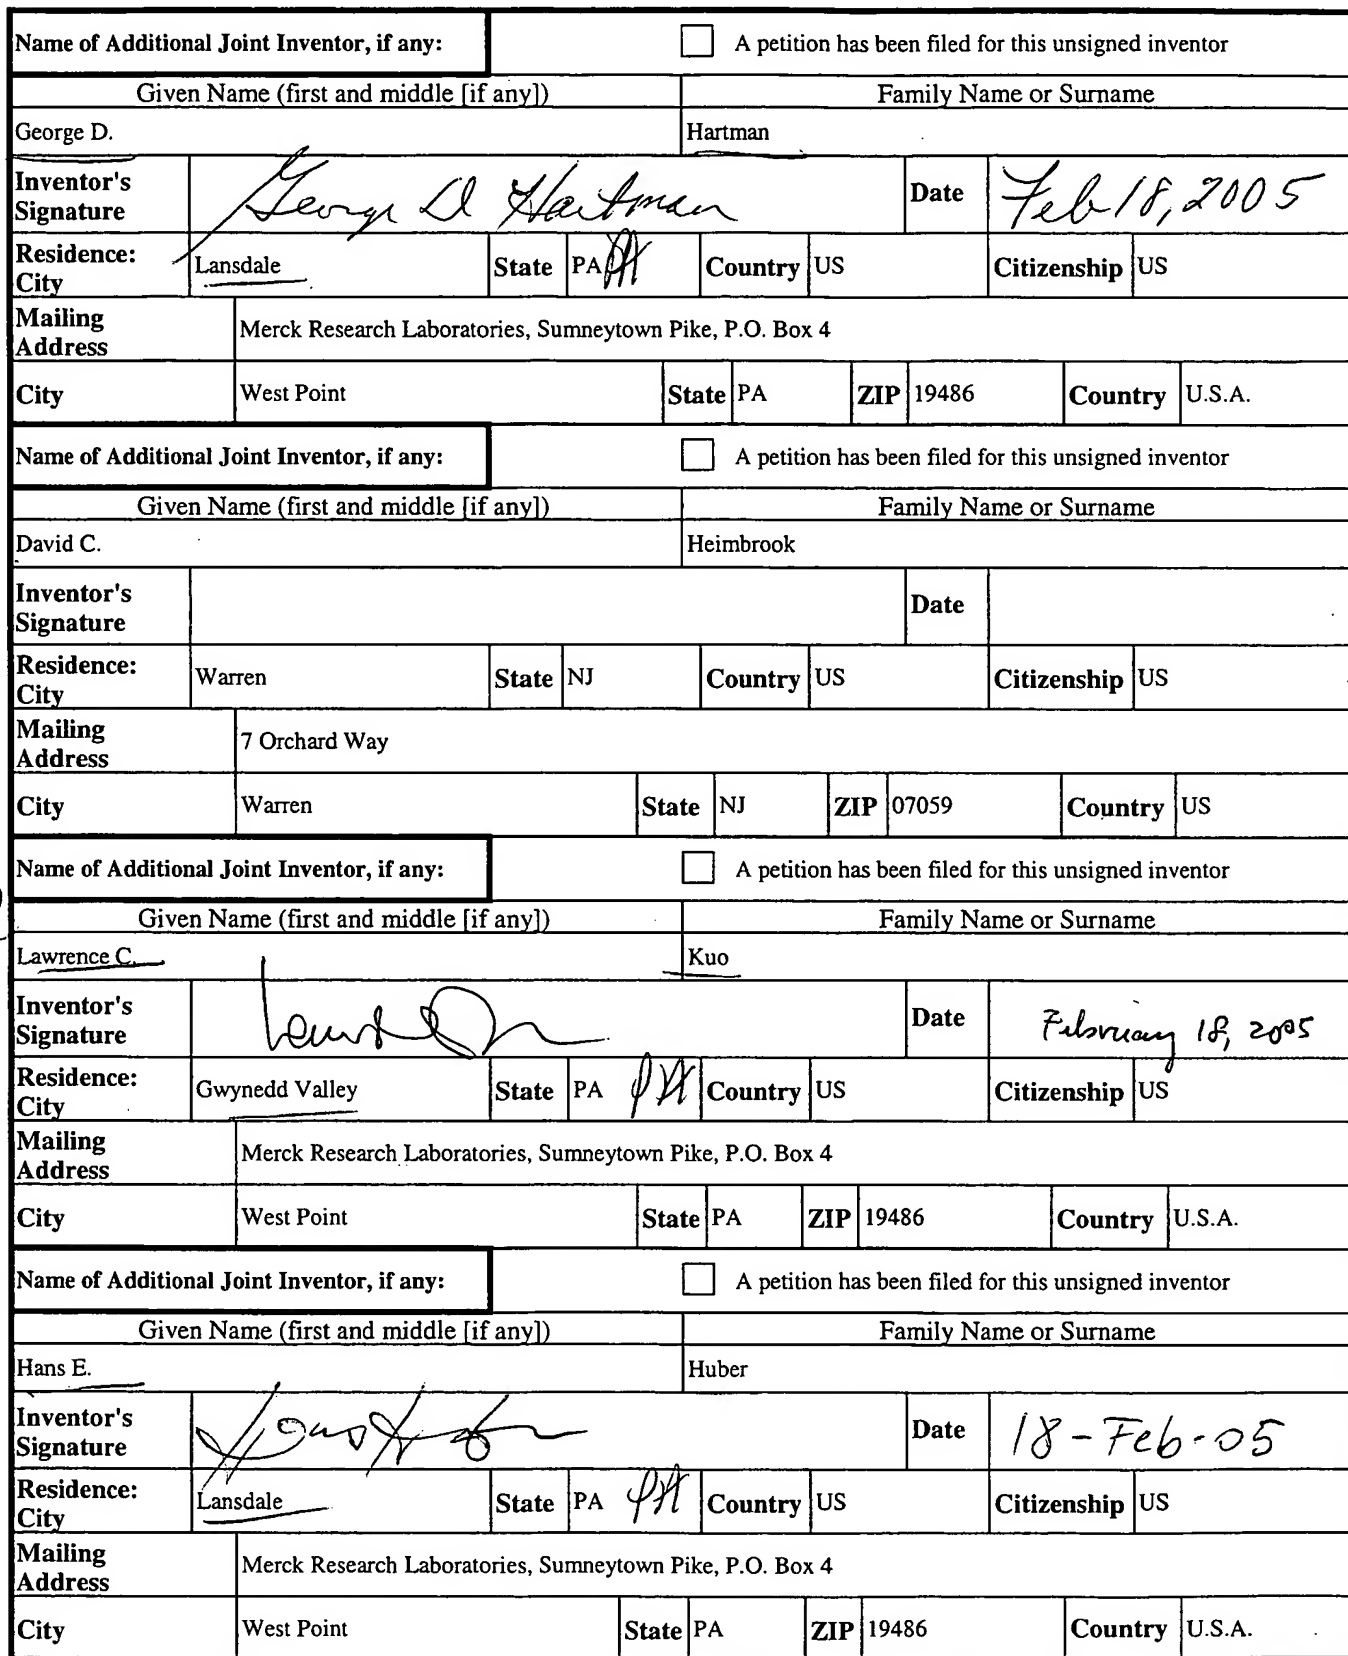 Name of Additional Joint Inventor, if any: A petition has been filed for this unsigned inventor
Given Name (first and middle [if any]) Family Name or Surname
George D. Hartman
Inventor's Signature George D Hartman Date Feb 18, 2005
Residence: City Lansdale State PA Country US Citizenship US
Mailing Address Merck Research Laboratories, Sumneytown Pike, P.O. Box 4
City West Point State PA ZIP 19486 Country U.S.A.
Name of Additional Joint Inventor, if any: A petition has been filed for this unsigned inventor
Given Name (first and middle [if any]) Family Name or Surname
David C. Heimbrook
Inventor's Signature Date
Residence: City Warren State NJ Country US Citizenship US
Mailing Address 7 Orchard Way
City Warren State NJ ZIP 07059 Country US
Name of Additional Joint Inventor, if any: A petition has been filed for this unsigned inventor
Given Name (first and middle [if any]) Family Name or Surname
Lawrence C. Kuo
Inventor's Signature Date February 18, 2005
Residence: City Gwynedd Valley State PA Country US Citizenship US
Mailing Address Merck Research Laboratories, Sumneytown Pike, P.O. Box 4
City West Point State PA ZIP 19486 Country U.S.A.
Name of Additional Joint Inventor, if any: A petition has been filed for this unsigned inventor
Given Name (first and middle [if any]) Family Name or Surname
Hans E. Huber
Inventor's Signature Date 18-Feb-05
Residence: City Lansdale State PA Country US Citizenship US
Mailing Address Merck Research Laboratories, Sumneytown Pike, P.O. Box 4
City West Point State PA ZIP 19486 Country U.S.A.